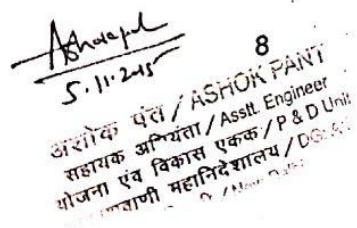 8
5.11.2015
अशोक पंत / ASHOK PANT
सहायक अभियंता / Asstt. Engineer
योजना एवं विकास एकक / P & D Unit
महानिदेशालय / DG: